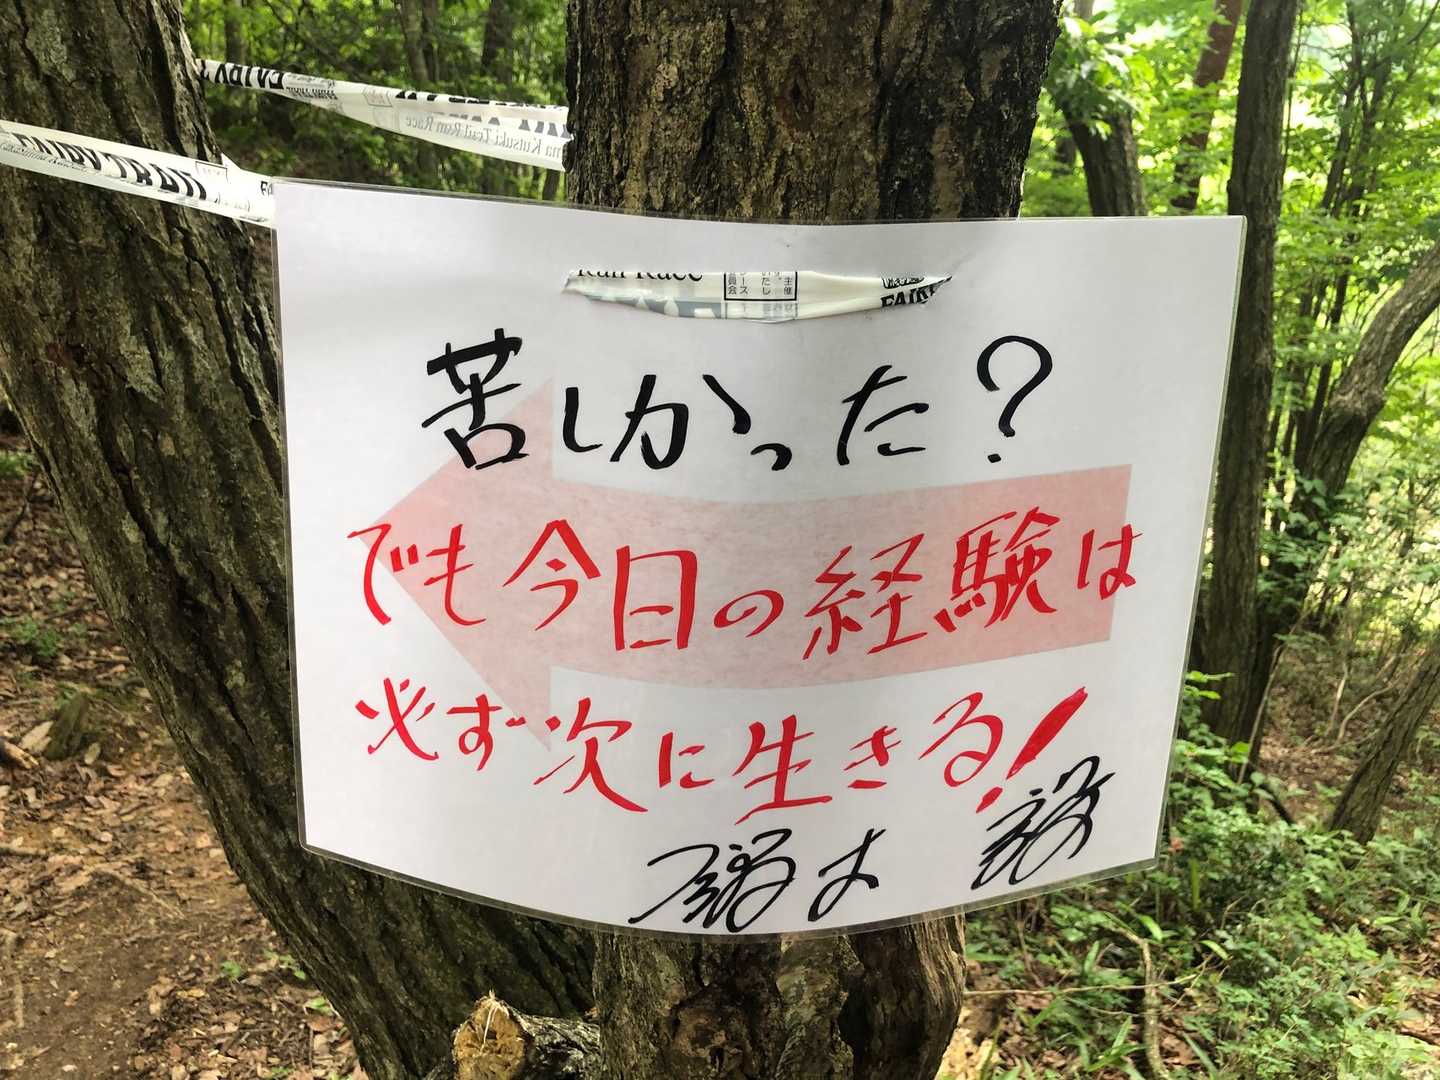 FAIRY TRAIL
ma Kutsuki Trail Run Race
Run Race
苦しかった?
でも今日の経験は
必ず次に生きる!